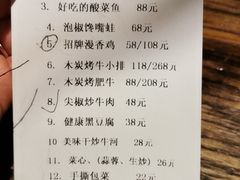 3. 好吃的酸菜鱼 88元
4. 泡椒馋嘴蛙 68元
5. 招牌漫香鸡 58/108元
6. 木炭烤牛小排 118/268元
7. 木炭烤肥牛 88/208元
8. 尖椒炒牛肉 48元
9. 健康黑豆腐 38元
10. 美味干炒牛河 28元
11. 菜心、(蒜蓉、生炒) 26元
12. 手撕包菜 22元